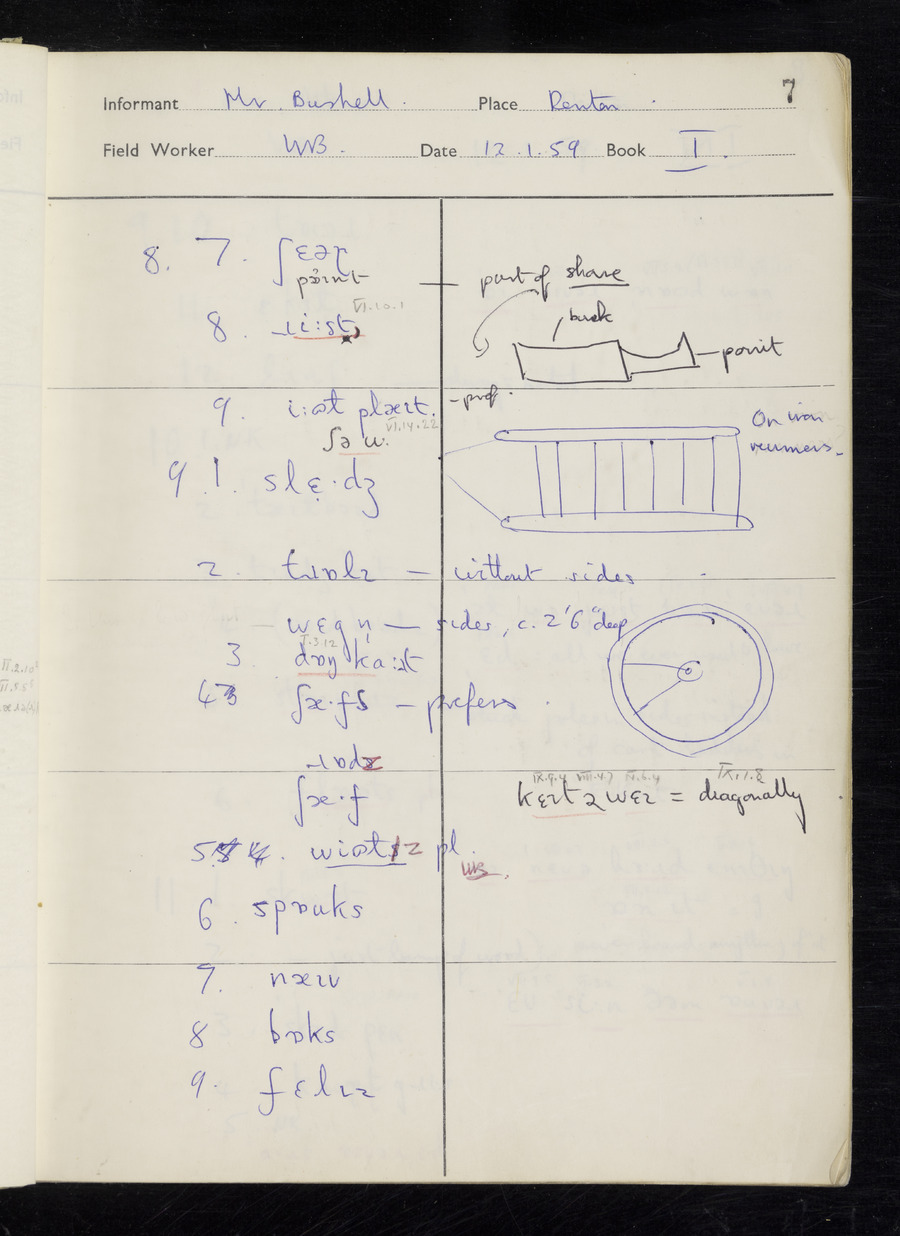 7
Informant Mr Bushell. Place Renton.
Field Worker WB. Date 12.1.59 Book I.
8. 7. ʃɛəɽ
pɔ̈ınt — part of share
VI.10.1
8 ɹi:st,
back
point
9. i:əɫ plæɪt. – pref.
VI.14.22
ʃə w.
On iron
runners.
9.1. slɛ̣·dʒ
2. tɹɒlɪ — without sides
wɛgn̩ — sides, c. 2'6" deep
I.3.12
3 dɒŋ ka:ɹt
4 ʃæ·fs – prefers
ɹɒdz
IX.9.4 VIII.4.7 IV.6.4 IX.1.8
ʃæ·f
kɛɪtɪwɛɪ = diagonally
5. wiəlz pl.
WB.
6. spɒuks
7. næɪv
8 bɒks
9. fɛlɪz